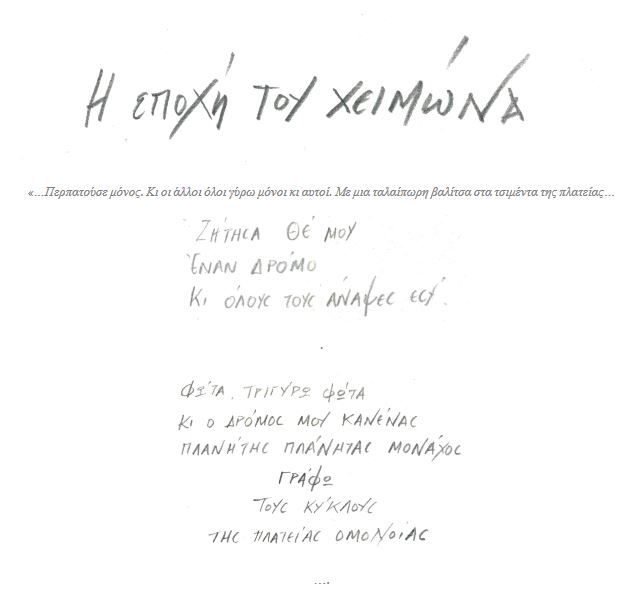 Η εποχή του χειμώνα
«…Περπατούσε μόνος. Κι οι άλλοι όλοι γύρω μόνοι κι αυτοί. Με μια ταλαίπωρη βαλίτσα στα τσιμέντα της πλατείας…
Ζήτησα Θέ μου
Έναν δρόμο
Κι όλους τους άναψες εσύ.
.
Φώτα, τριγύρω φώτα
κι ο δρόμος μου κανένας
πλανήτης πλάνητας μονάχος
γράφω
τους κύκλους
της πλατείας Ομονοίας
….